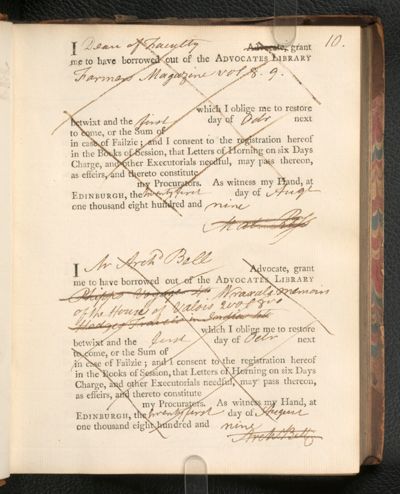 10.
I Dean of Faculty Advocate, grant
me to have borrowed out of the ADVOCATES LIBRARY
Farmers Magazine vol 8. 9.
which I oblige me to restore
betwixt and the first day of Octr next
to come, or the Sum of
in case of Failzie; and I consent to the registration hereof
in the Books of Session, that Letters of Horning on six Days
Charge, and other Executorials needful, may pass thereon,
as effeirs, and thereto constitute
my Procurators. As witness my Hand, at
EDINBURGH, the twenty first day of Augt
one thousand eight hundred and nine
Mat. Ross
I Mr Archd Bell Advocate, grant
me to have borrowed out of the ADVOCATES LIBRARY
Phipps Wraxals memoirs
of the House of Valois 2 vol 8vo
Hodges Travels in India
which I oblige me to restore
betwixt and the first day of Octr next
to come, or the Sum of
in case of Failzie; and I consent to the registration hereof
in the Books of Session, that Letters of Horning on six Days
Charge, and other Executorials needful, may pass thereon,
as effeirs, and thereto constitute
my Procurators. As witness my Hand, at
EDINBURGH, the twenty first day of August
one thousand eight hundred and nine
Archd Bell